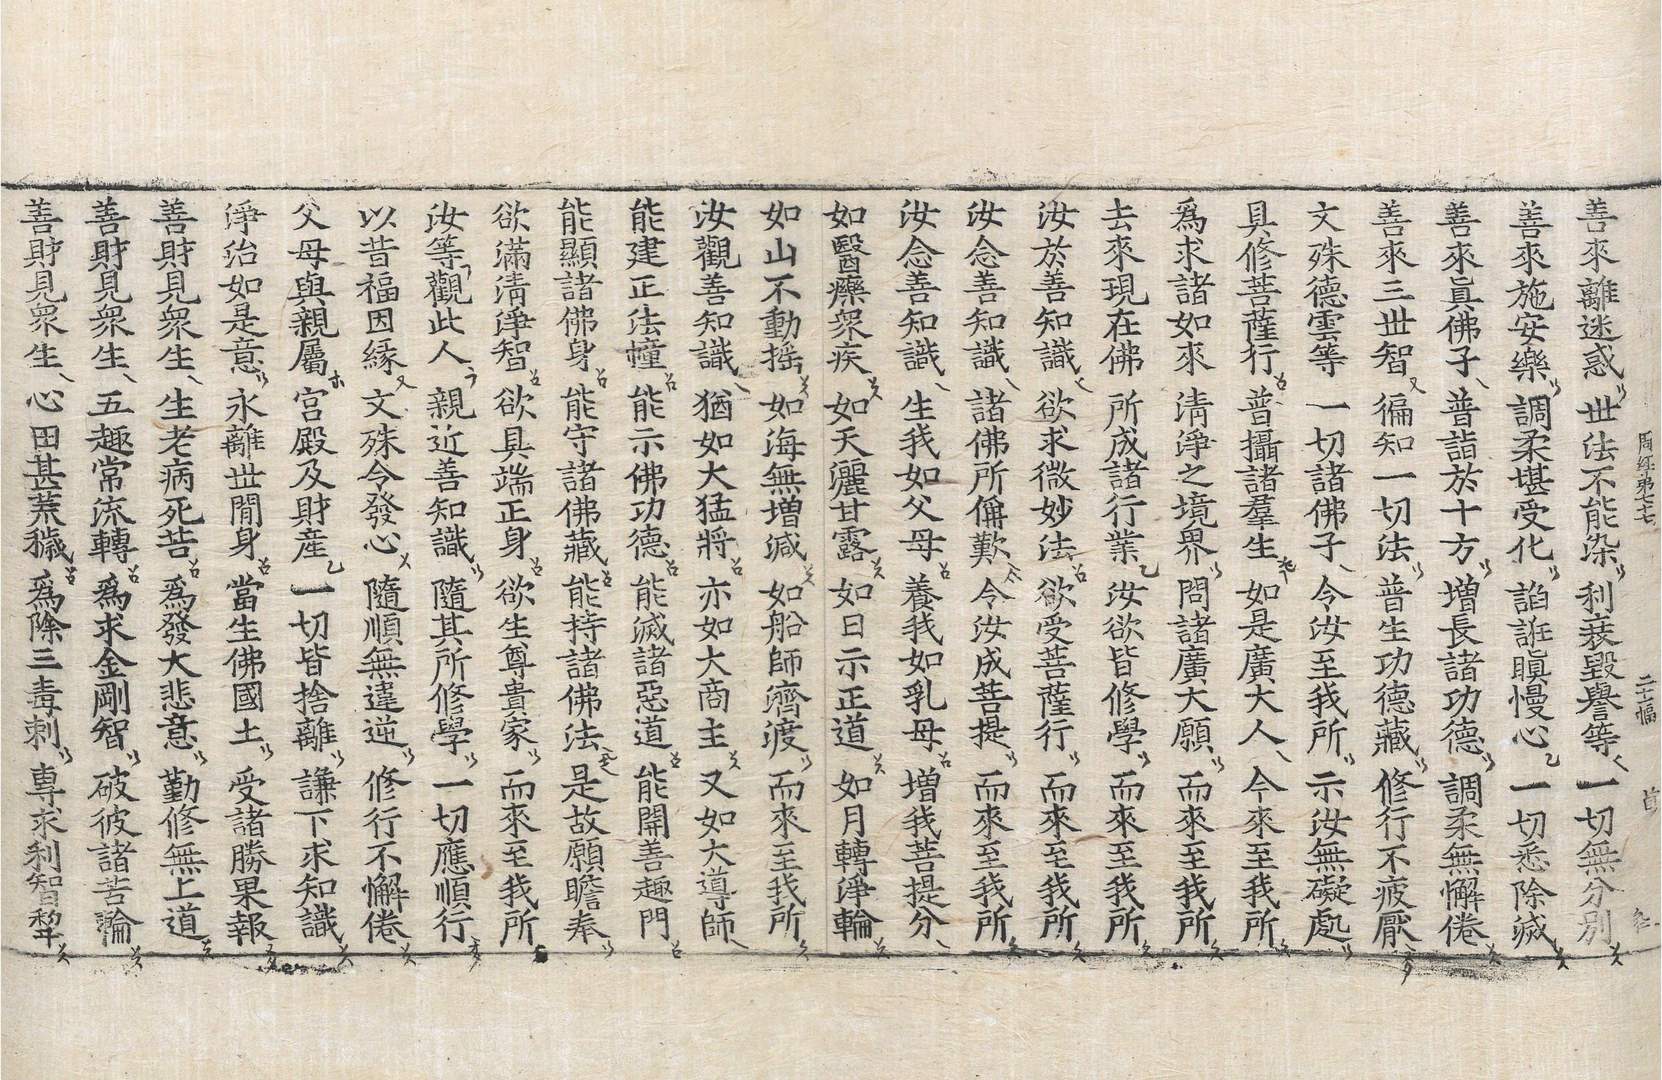 周經第七十七 二十幅
善來離迷惑 世法不能染 利衰毀譽等 一切無分別
善來施安樂 調柔堪受化 諂誑瞋慢心 一切悉除滅
善來眞佛子 普詣於十方 増長諸功德 調柔無懈倦
善來三世智 徧知一切法 普生功德藏 修行不疲厭
文殊德雲等 一切諸佛子 令汝至我所 示汝無礙處
具修菩薩行 普攝諸羣生 如是廣大人 今來至我所
爲求諸如來 清淨之境界 問諸廣大願 而來至我所
去來現在佛 所成諸行業 汝欲皆修學 而來至我所
汝於善知識 欲求微妙法 欲受菩薩行 而來至我所
汝念善知識 諸佛所偁歎 令汝成菩提 而來至我所
汝念善知識 生我如父母 養我如乳母 増我菩提分
如醫療衆疾 如天灑甘露 如日示正道 如月轉淨輪
如山不動摇 如海無増減 如船師濟渡 而來至我所
汝觀善知識 猶如大猛將 亦如大商主 又如大導師
能建正法幢 能示佛功德 能滅諸惡道 能開善趣門
能顯諸佛身 能守諸佛藏 能持諸佛法 是故願瞻奉
欲滿清淨智 欲具端正身 欲生尊貴家 而來至我所
汝等觀此人 親近善知識 隨其所修學 一切應順行
以昔福因緣 文殊令發心 隨順無違逆 修行不懈倦
父母與親屬 宮殿及財産 一切皆捨離 謙下求知識
淨治如是意 永離世閒身 當生佛國土 受諸勝果報
善財見衆生 生老病死苦 爲發大悲意 勤修無上道
善財見衆生 五趣常流轉 爲求金剛智 破彼諸苦輪
善財見衆生 心田甚荒穢 爲除三毒刺 專求利智犂